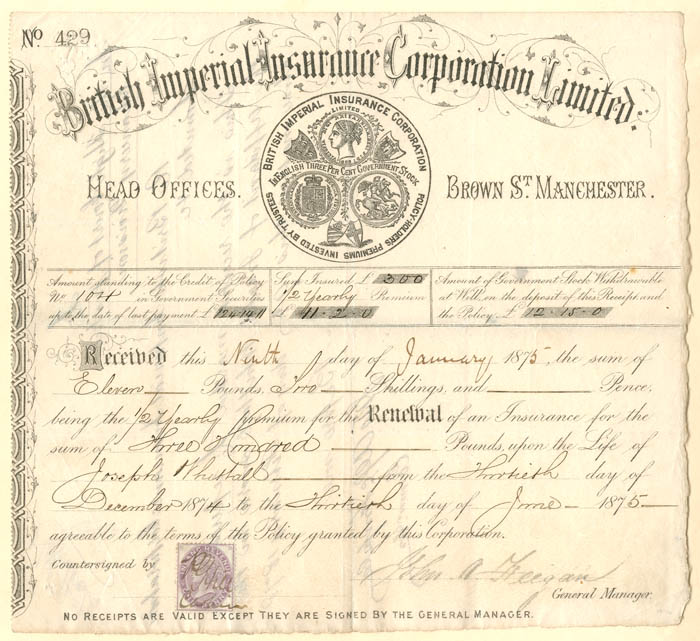 No. 429
British Imperial Insurance Corporation Limited.
BRITISH IMPERIAL INSURANCE CORPORATION
LIMITED
IN ENGLISH THREE PER CENT GOVERNMENT STOCK
POLICY-HOLDERS PREMIUMS INVESTED BY TRUSTEES
HEAD OFFICES. BROWN ST. MANCHESTER.
Amount standing to the Credit of Policy
No. 104 in Government Securities
up to the date of last payment £
Sum Insured £ 300
1/2 Yearly Premium
£ 11-2-0
Amount of Government Stock Withdrawable
at Will, on the deposit of this Receipt and
the Policy £ 12-15-0
Received this Ninth day of January 1875, the sum of
Eleven Pounds, Two Shillings, and Pence,
being the 1/2 Yearly premium for the Renewal of an Insurance for the
sum of Three Hundred Pounds, upon the Life of
Joseph from the Thirtieth day of
December 1874 to the Thirtieth day of June 1875
agreeable to the terms of the Policy granted by this Corporation.
Countersigned by
John A.
General Manager.
NO RECEIPTS ARE VALID EXCEPT THEY ARE SIGNED BY THE GENERAL MANAGER.